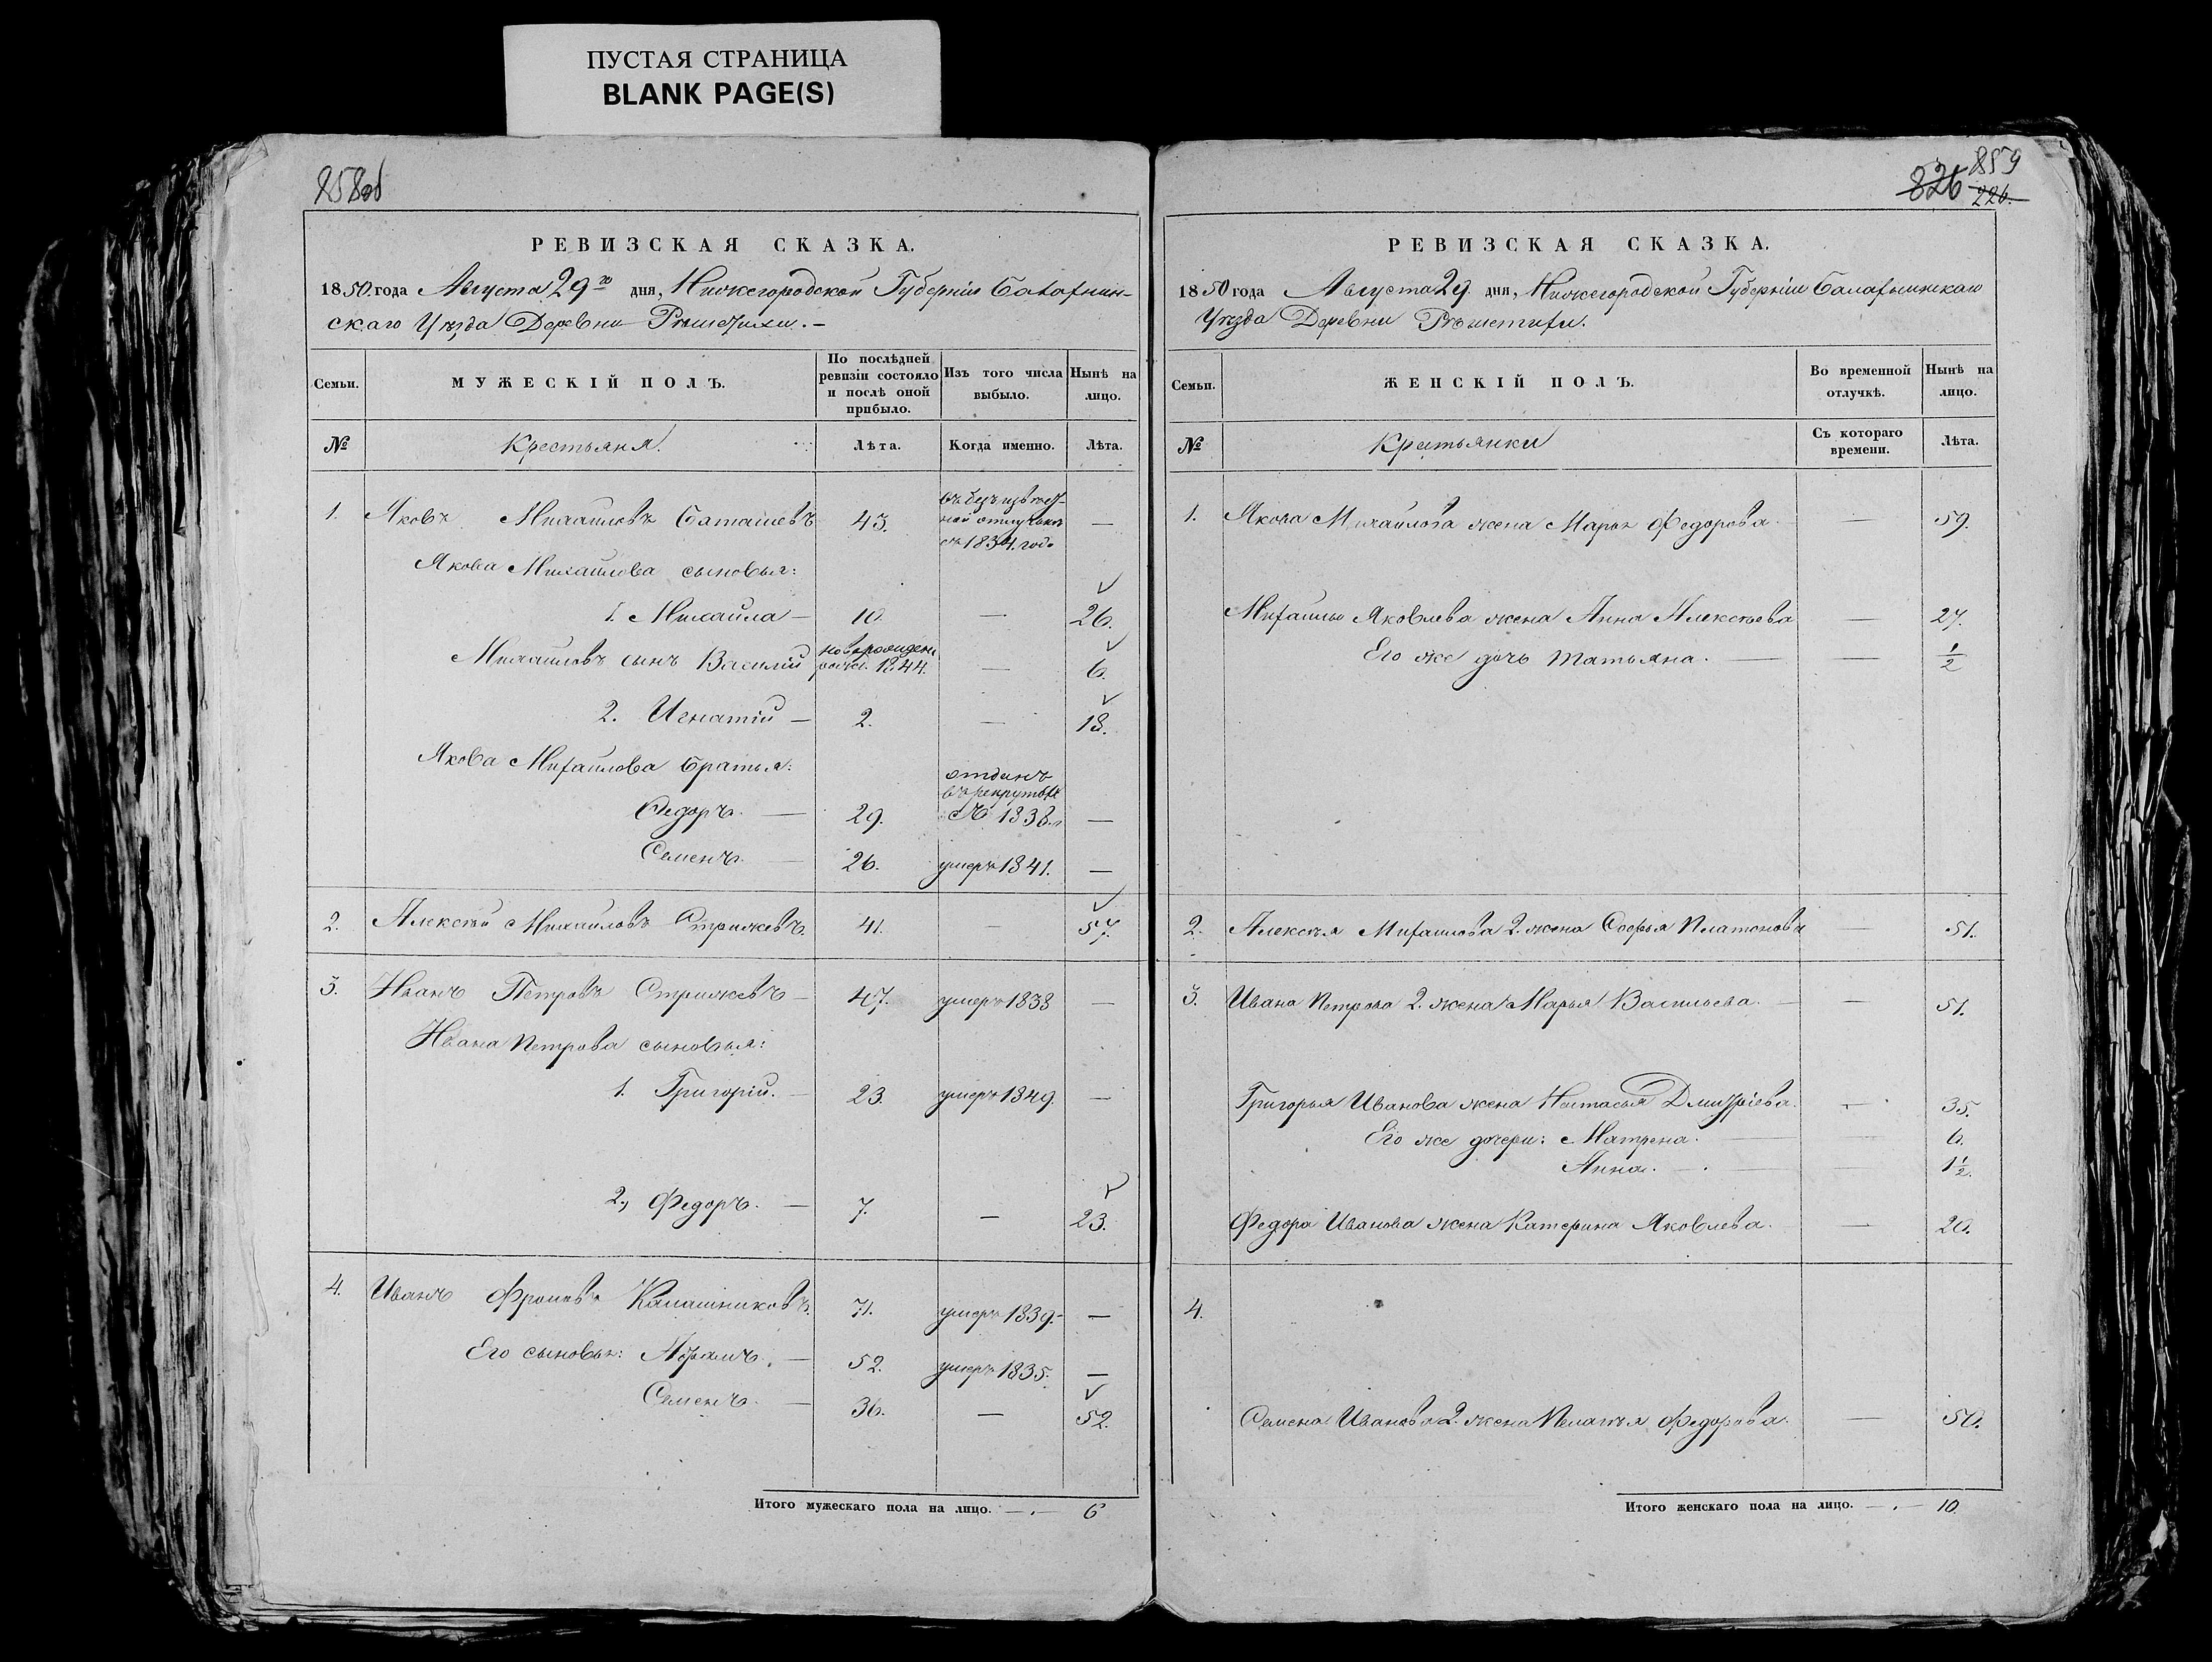 ПУСТАЯ СТРАНИЦА
BLANK PAGE(S)
858об
РЕВИЗСКАЯ СКАЗКА.
1850 года Августа 29го дня, Нижегородской Губерніи Балахнин-
скаго Уѣзда Деревни Рѣшетихи. -
Семьи.
МУЖЕСКІЙ ПОЛЪ.
По послѣдней ревизіи состояло и послѣ оной прибыло.
Изъ того числа выбыло.
Нынѣ на лицо.
№ Крестьяня. Лѣта. Когда именно. Лѣта.
1. Яковъ Михаиловъ 43. въ безъизвѣст-
ной отлучкѣ —
съ 1834. года
Якова Михаилова сыновья:
1. Михаила — 10. — 26.
Михаиловъ сынъ Василій новорожденъ
1844. — 6.
2. Игнатій — 2. — 18.
Якова Михаилова братья:
отданъ
въ рекруты
Федоръ. — 29. 1838. —
Семенъ. — 26. умеръ 1841. —
2. Алексѣй Михаиловъ Стрижевъ. 41. — 57.
3. Иванъ Петровъ Стрижевъ — 47. умеръ 1838 —
Ивана Петрова сыновья:
1. Григорій. — 23. умеръ 1849. —
2, Федоръ. — 7. — 23.
4. Иванъ Калашниковъ. 71. умеръ 1839. —
Его сыновья: Абрамъ. — 52. умеръ 1835. —
Семенъ. — 36. — 52.
Итого мужескаго пола на лицо. — . — 6
826 859
226.
РЕВИЗСКАЯ СКАЗКА.
1850 года Августа 29 дня, Нижегородской Губерніи Балахнинскаго
Уѣзда Деревни Рѣшетихи.
Семьи.
ЖЕНСКІЙ ПОЛЪ.
Во временной отлучкѣ.
Нынѣ на лицо.
№ Крестьянки Съ котораго времени. Лѣта.
1. Якова Михайлова жена Марья Федорова. — 59.
Михаилы Яковлева жена Анна Алексѣева — 27.
Его же дочь Татьяна. — — 1/2
2. Алексѣя Михаилова 2. жена Софья Платонова — 51.
3. Ивана Петрова 2. жена Марья Васильева. — 51.
Григорья Иванова жена Настасья Дмитріева. — 35.
Его же дочери: Матрена. — 6.
Анна. — . — 1 1/2.
Федора Иванова жена Катерина Яковлева. — 20.
4.
Семена Иванова 2. жена Пелагея Федорова. — 50.
Итого женскаго пола на лицо. — . — 10.